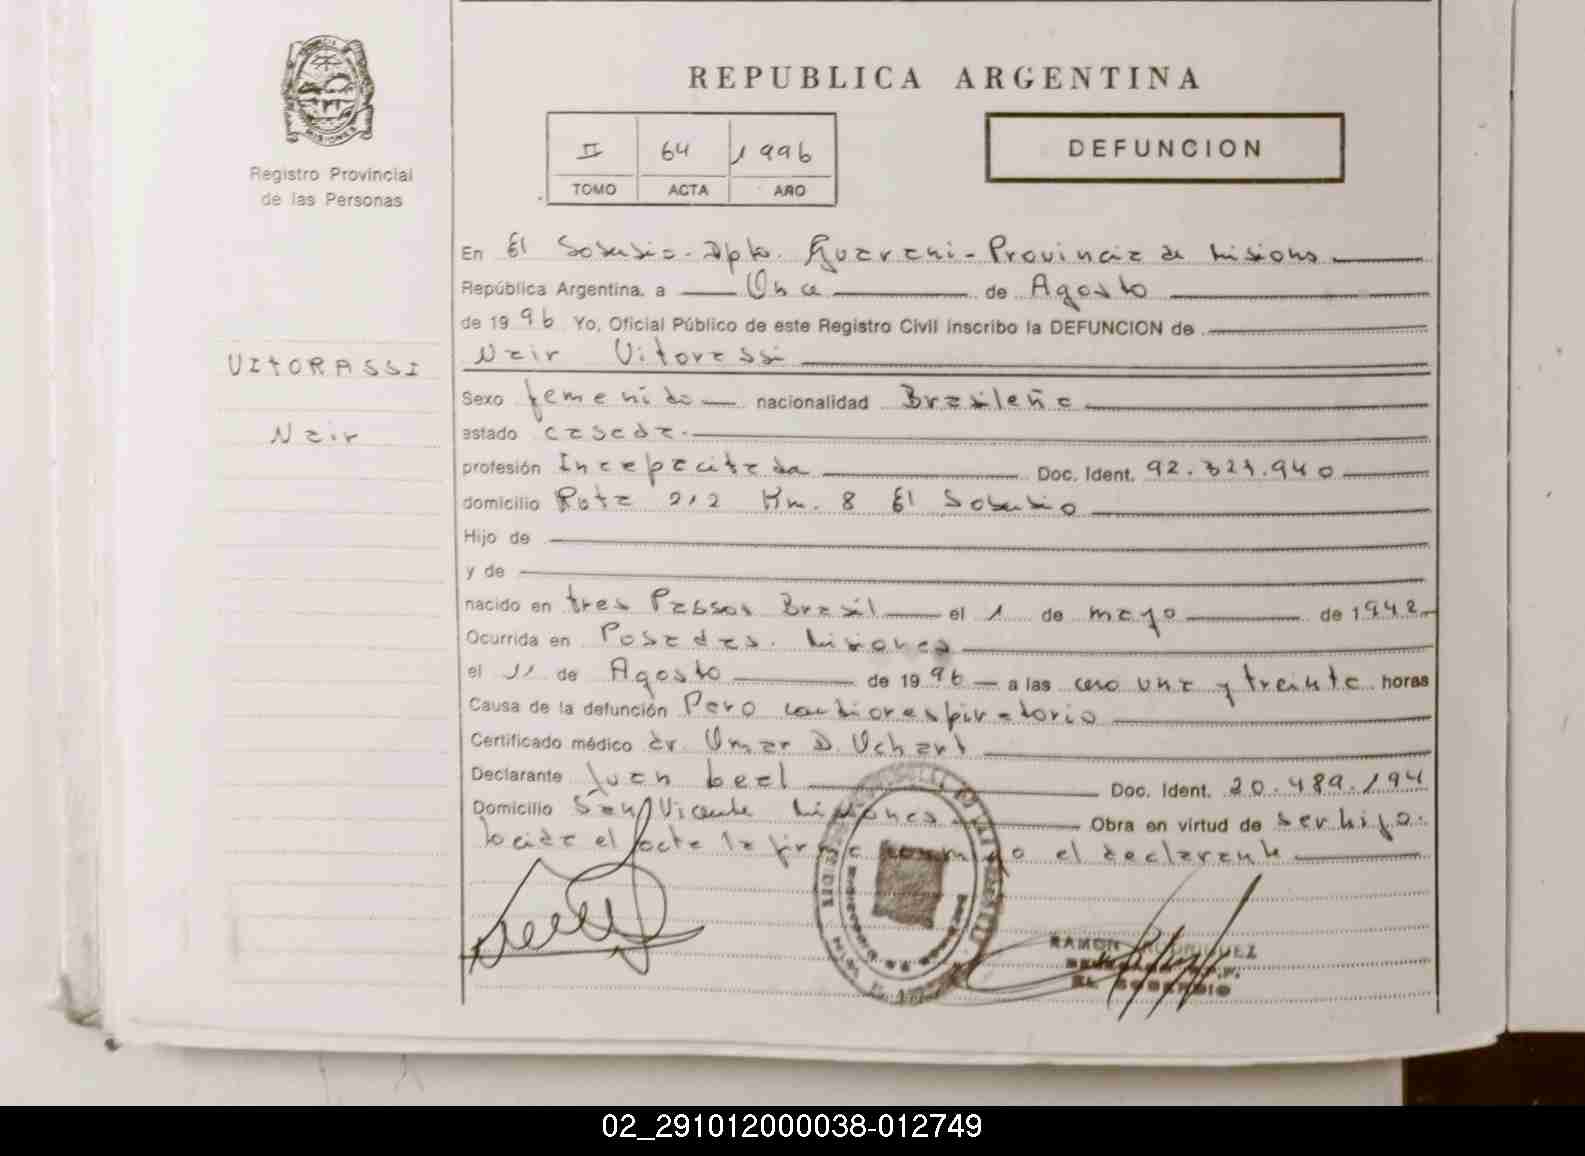 REPUBLICA ARGENTINA
MISIONES
Registro Provincial
de las Personas
II 64 1996
TOMO ACTA AÑO
DEFUNCION
En El Soberbio - Dpto. Guarani - Provincia de Misiones
República Argentina, a Once de Agosto
de 1996 Yo, Oficial Público de este Registro Civil inscribo la DEFUNCION de
Nair Vitorassi
VITORASSI
Nair
Sexo femenido nacionalidad Brasileña
estado casada.
profesión Incapacitada Doc. Ident. 92.321.940
domicilio Ruta 212 Km. 8 El Soberbio
Hijo de
y de
nacido en tres Passos Brasil el 1 de mayo de 1942
Ocurrida en Posadas. Misiones
el 11 de Agosto de 1996 a las cero una y treinta horas
Causa de la defunción Paro cardiorespiratorio
Certificado médico dr. Omar D.
Declarante Juan Leal Doc. Ident. 20.489.194
Domicilio San Vicente Misiones Obra en virtud de ser hijo.
Leida el acta la firma conmigo el declarante
RAMON RODRIGUEZ
EL SOBERBIO
02_291012000038-012749